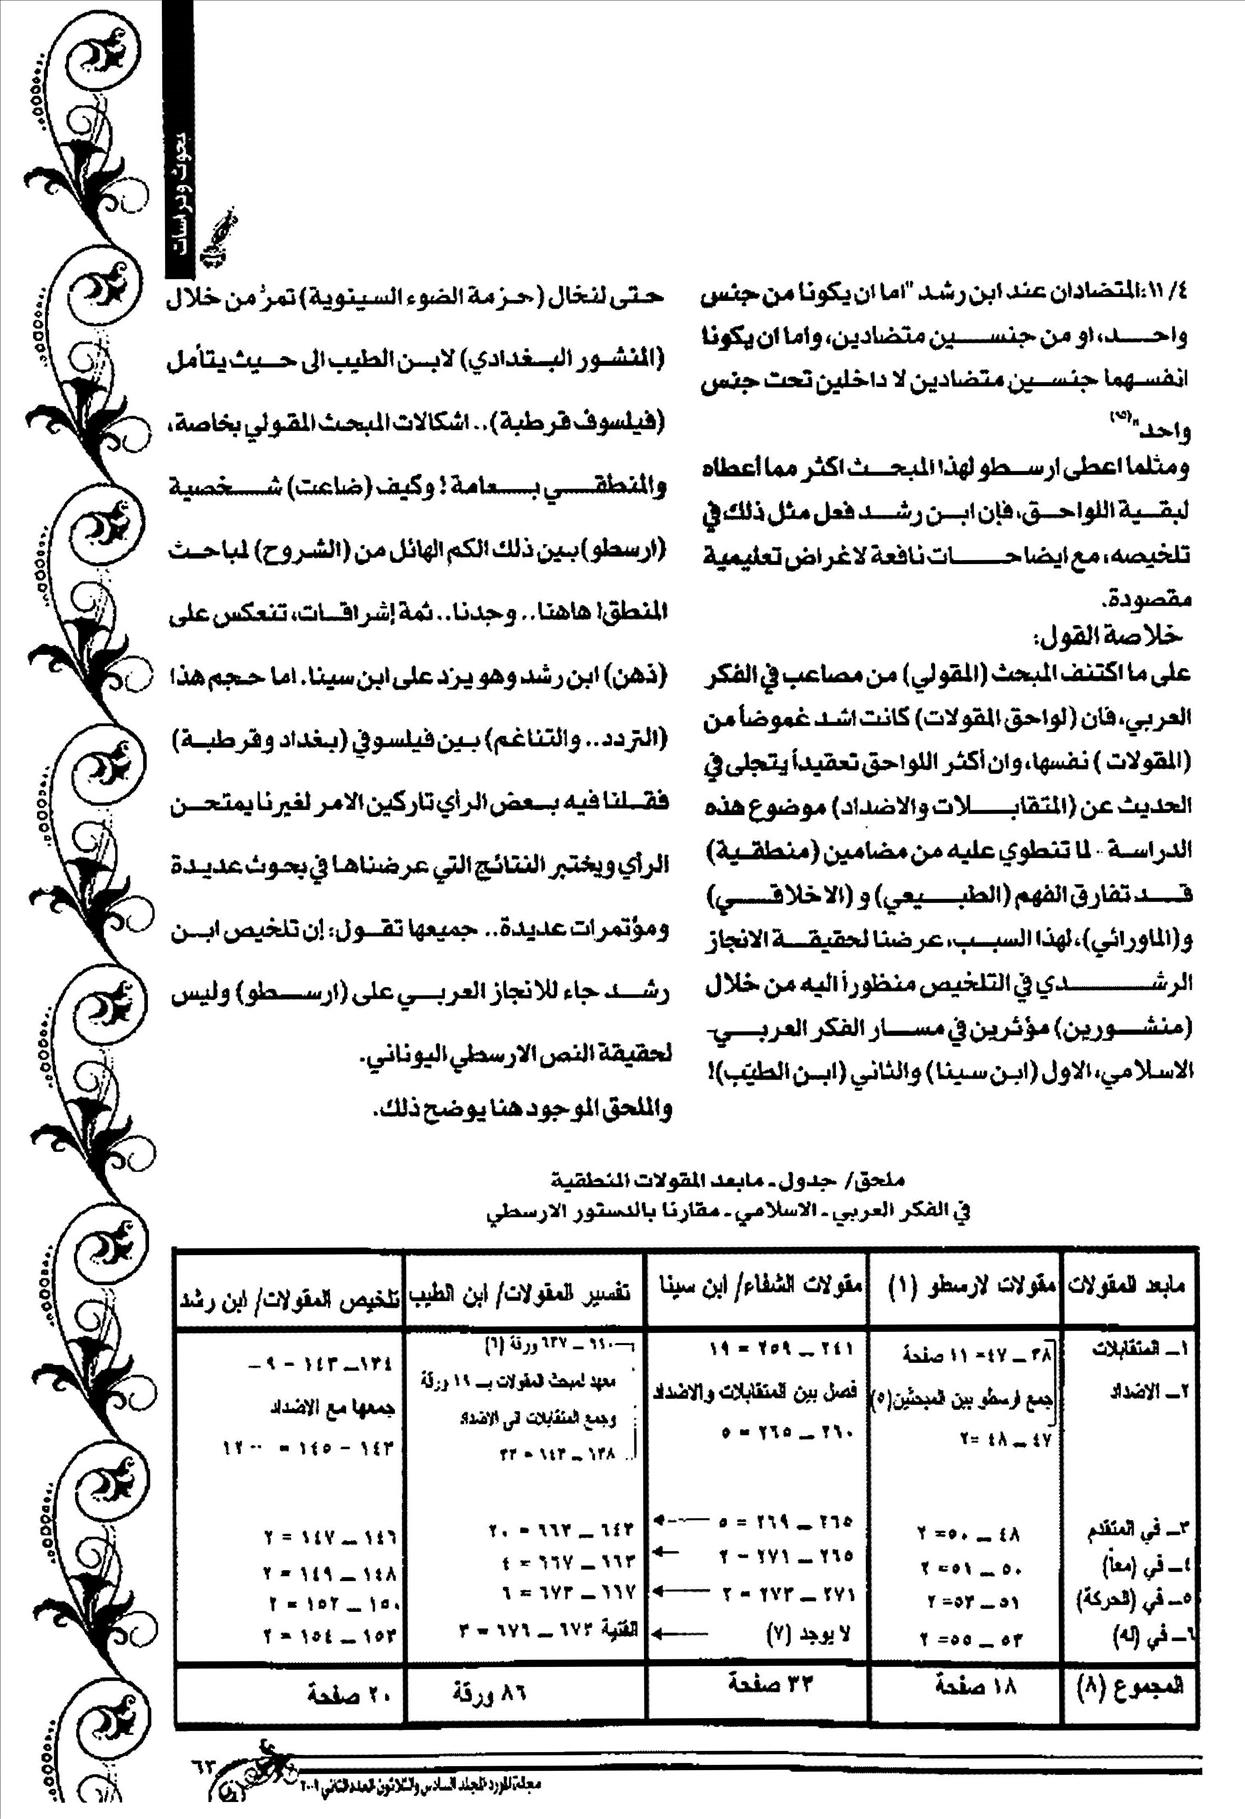 بحوث ودراسات
١١/٤: المتضادان عند ابن رشد "اما ان يكونا من جنس
واحد، او من جنسين متضادين، واما ان يكونا
انفسهما جنسين متضادين لا داخلين تحت جنس
واحد"
ومثلما اعطى ارسطو لهذا المبحث اكثر مما أعطاه
لبقية اللواحق، فإن ابن رشد فعل مثل ذلك في
تلخيصه، مع ايضاحات نافعة لاغراض تعليمية
مقصودة.
خلاصة القول:
على ما اكتنف المبحث (المقولي) من مصاعب في الفكر
العربي، فان (لواحق المقولات) كانت اشد غموضاً من
(المقولات) نفسها، وان أكثر اللواحق تعقيداً يتجلى في
الحديث عن (المتقابلات والاضداد) موضوع هذه
الدراسة - لما تنطوي عليه من مضامين (منطقية)
قد تفارق الفهم (الطبيعي) و (الاخلاقي)
و(الماورائي)، لهذا السبب، عرضنا لحقيقة الانجاز
الرشدي في التلخيص منظوراً اليه من خلال
(منشورين) مؤثرين في مسار الفكر العربي-
الاسلامي، الاول (ابن سينا) والثاني (ابن الطيّب)!
حتى لنخال (حزمة الضوء السينوية) تمرُ من خلال
(المنشور البغدادي) لابن الطيب الى حيث يتأمل
(فيلسوف قرطبة).. اشكالات المبحث المقولي بخاصة،
والمنطقي بعامة! وكيف (ضاعت) شخصية
(ارسطو) بين ذلك الكم الهائل من (الشروح) لمباحث
المنطق! هاهنا.. وجدنا.. ثمة إشراقات، تنعكس على
(ذهن) ابن رشد وهو يرد على ابن سينا. اما حجم هذا
(التردد.. والتناغم) بين فيلسوفي (بغداد وقرطبة)
فقلنا فيه بعض الرأي تاركين الامر لغيرنا يمتحن
الرأي ويختبر النتائج التي عرضناها في بحوث عديدة
ومؤتمرات عديدة.. جميعها تقول: إن تلخيص ابن
رشد جاء للانجاز العربي على (ارسطو) وليس
لحقيقة النص الارسطي اليوناني.
والملحق الموجود هنا يوضح ذلك.
ملحق/ جدول ـ مابعد المقولات المنطقية
في الفكر العربي ـ الاسلامي ـ مقارنا بالدستور الارسطي
مابعد المقولات مقولات لارسطو (١) مقولات الشفاء/ ابن سينا تفسير المقولات/ ابن الطيب تلخيص المقولات/ ابن رشد
١ـ المتقابلات ٣٨ ـ ٤٧= ١١ صفحة ٢٤١ ـ ٢٥٩ = ١٩ ورقة (٦) ١٣٤ـ ١٤٣ - ٩-
٢ـ الاضداد جمع ارسطو بين المبحثين(٥) فصل بين المتقابلات والاضداد معهد لمبحث المقولات بـ ١٩ ورقة جمعها مع الاضداد
٤٧ ـ ٤٨ =٢ ٢٦٠ ـ ٢٦٥ = ٥ وجمع المتقابلات الى الاضداد ١٤٣ - ١٤٥ =
٣ـ في المتقدم ٤٨ ـ ٥٠ =٢ ٢٦٥ ـ ٢٦٩ = ٥ ٦٤٣ ـ ٦٦٣ = ٢٠ ١٤٦ ـ ١٤٧ = ٢
٤ـ في (معاً) ٥٠ ـ ٥١ =٢ ٢٦٥ ـ ٢٧١ - ٢ ٦٦٣ ـ ٦٦٧ = ٤ ١٤٨ ـ ١٤٩ = ٢
٥ـ في (الحركة) ٥١ ـ ٥٣ =٢ ٢٧١ ـ ٢٧٣ = ٢ ٦٦٧ ـ ٦٧٣ = ٦ ١٥٠ ـ ١٥٢ = ٢
٦ـ في (له) ٥٣ ـ ٥٥ =٢ لا يوجد (٧) القنية ٦٧٣ ـ ٦٧٦ = ٣ ١٥٣ ـ ١٥٤ = ٢
المجموع (٨) ١٨ صفحة ٣٣ صفحة ٨٦ ورقة ٢٠ صفحة
٦٣
مجلة المورد المجلد السادس والثلاثون العدد الثاني ٢٠٠٩